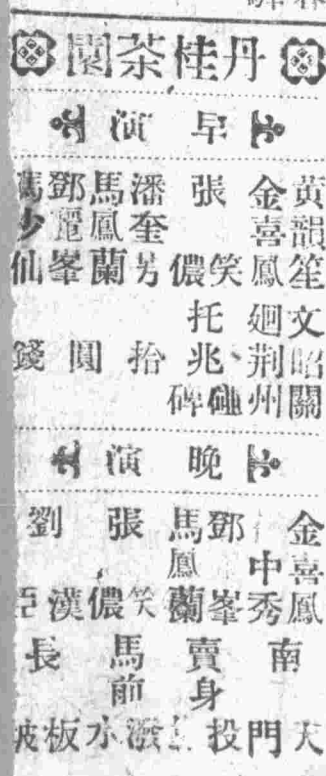 丹桂茶園
早演
黃韻笙
金喜鳳
張笑儂
潘奎芳
馬鳳蘭
鄧麗峯
仙
文昭關
廻荆州
托兆碰碑
拾圓錢
晚演
金喜鳳
中秀
鄧峯
馬鳳蘭
張笑儂
劉漢
南天門
賣身投
馬前潑水
長板坡